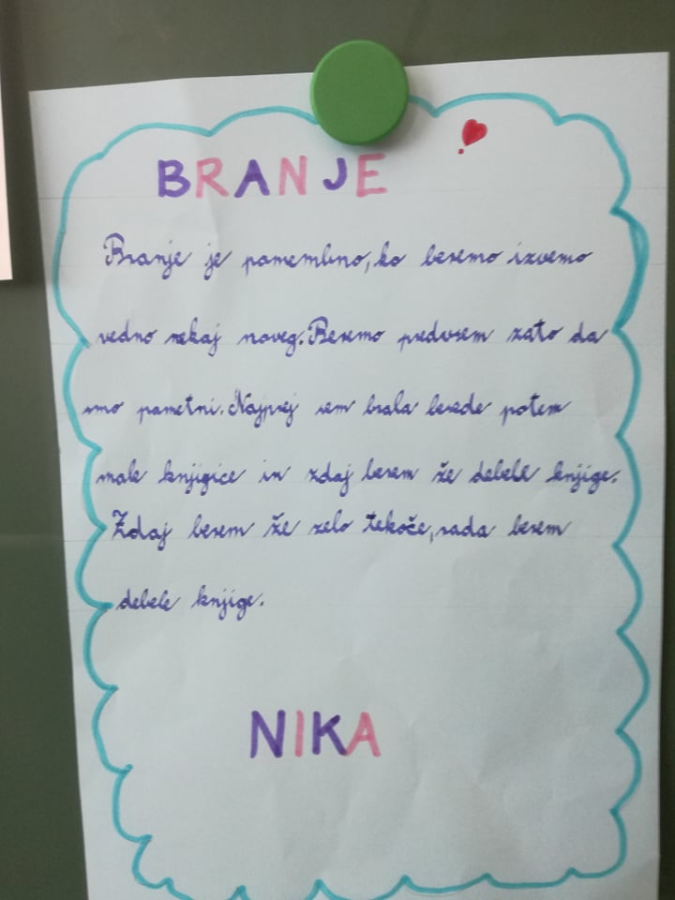 BRANJE
Branje je pomembno, ko beremo izvemo
vedno nekaj noveg. Beremo predvsem zato da
smo pametni. Najprej sem brala besede potem
male knjigice in zdaj berem že debele knjige.
Zdaj berem že zelo tekoče, rada berem
debele knjige.
NIKA